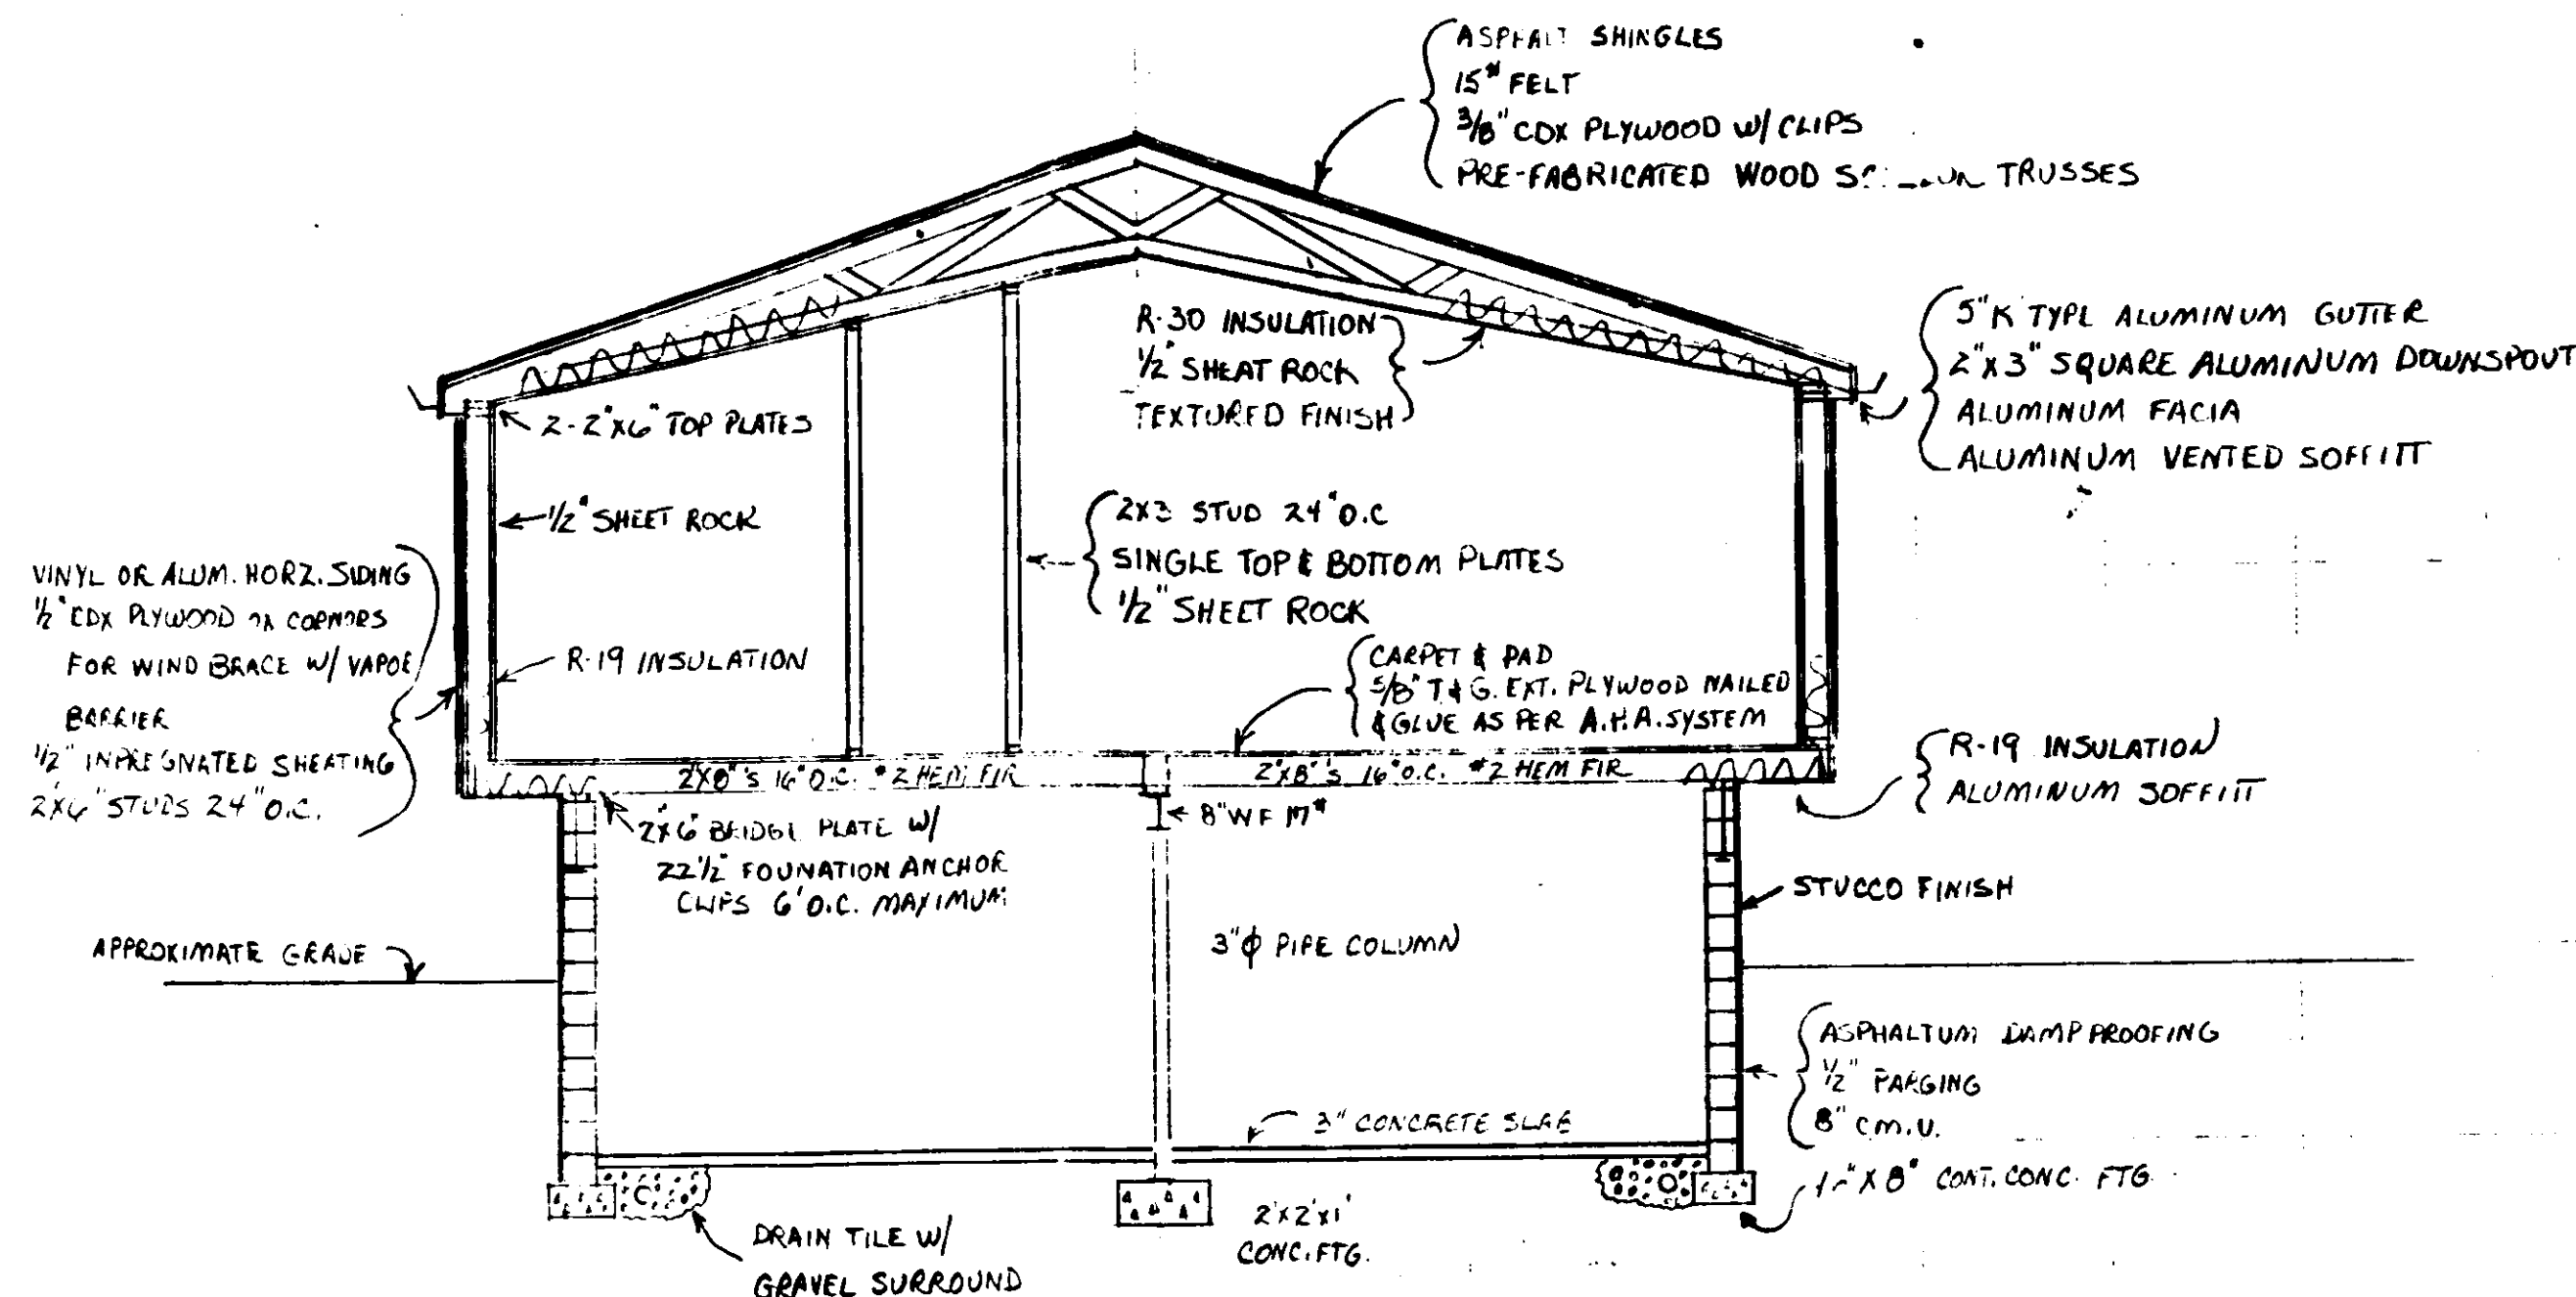 ASPHALT SHINGLES
15# FELT
3/8" CDX PLYWOOD W/ CLIPS
PRE-FABRICATED WOOD TRUSSES
5" K TYPE ALUMINUM GUTTER
2"X3" SQUARE ALUMINUM DOWNSPOUT
ALUMINUM FACIA
ALUMINUM VENTED SOFFITT
R-30 INSULATION
1/2" SHEAT ROCK
TEXTURED FINISH
2-2"X6" TOP PLATES
1/2" SHEET ROCK
R-19 INSULATION
2X3 STUD 24" O.C
SINGLE TOP & BOTTOM PLATES
1/2" SHEET ROCK
VINYL OR ALUM. HORZ. SIDING
1/2" CDX PLYWOOD CORNORS
FOR WIND BRACE W/ VAPOR
BARRIER
1/2" INPREGNATED SHEATING
2"X6" STUDS 24" O.C.
CARPET & PAD
5/8" T&G. EXT. PLYWOOD NAILED
& GLUE AS PER A.H.A. SYSTEM
2"X8"'s 16" O.C. #2 HEM FIR
2"X8"'s 16" O.C. #2 HEM FIR
R-19 INSULATION
ALUMINUM SOFFITT
2"X6" BRIDGE PLATE W/
22 1/2" FOUNATION ANCHOR
CLIPS 6' O.C. MAXIMUM
8" WF 17#
STUCCO FINISH
APPROXIMATE GRADE
3"φ PIPE COLUMN
ASPHALTUM DAMPPROOFING
1/2" PARGING
8" C.M.U.
3" CONCRETE SLAB
X 8" CONT. CONC. FTG.
DRAIN TILE W/
GRAVEL SURROUND
2'X2'X1'
CONC. FTG.